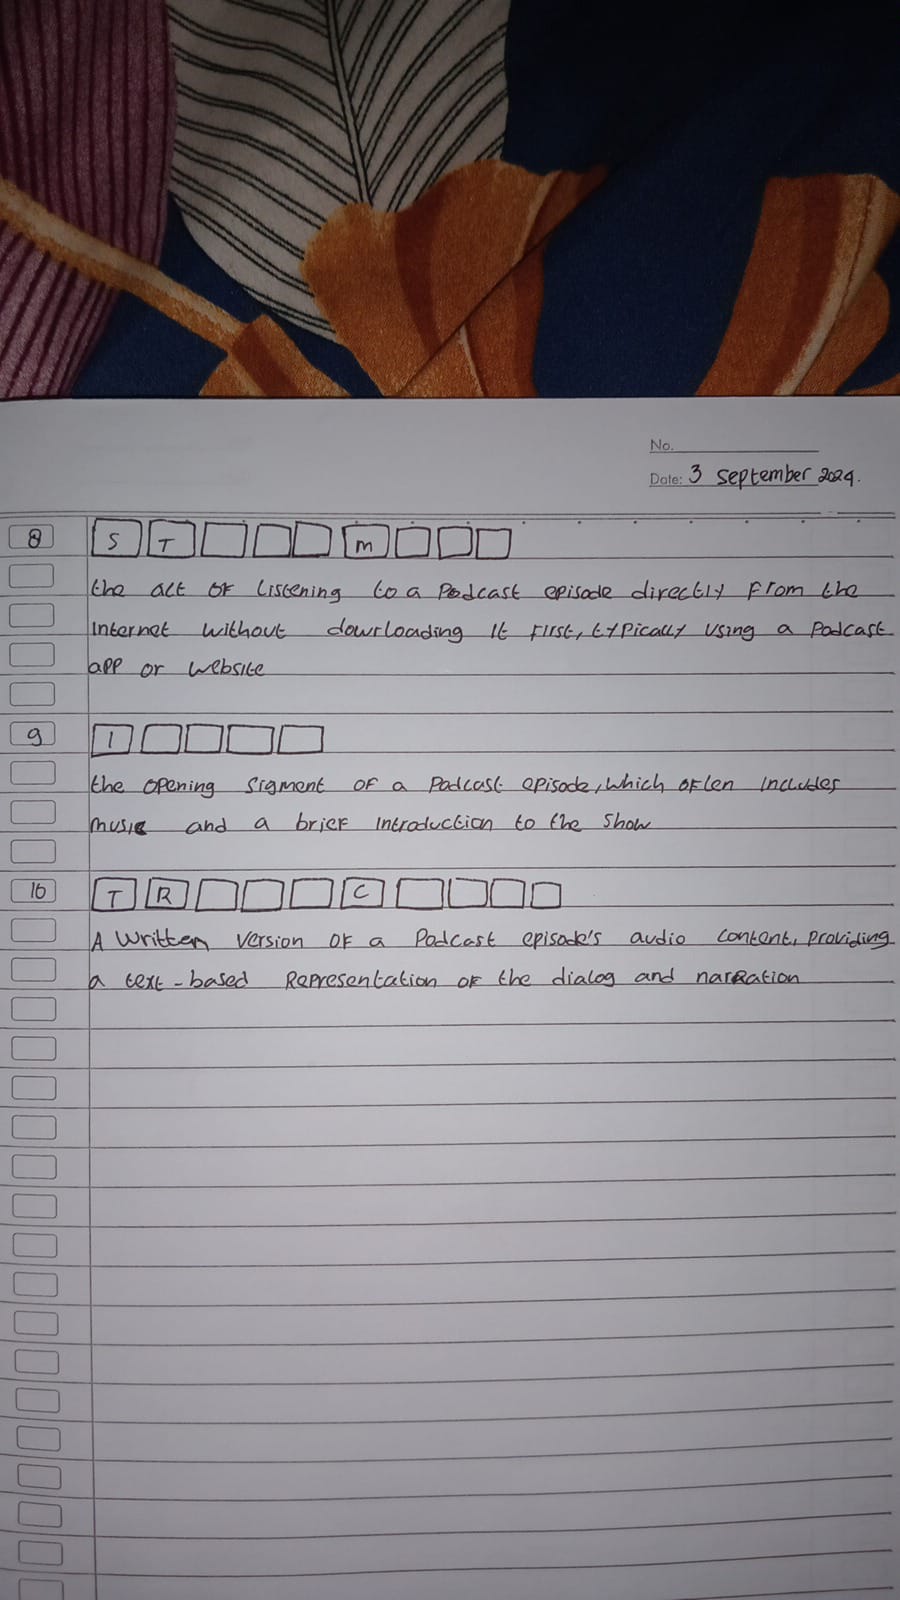 No.
Date: 3 September 2024.
8 S T M
the act of listening to a Podcast episode directly from the
Internet without dowrloading it first, typically using a Podcast
app or website
9 I
the opening sigment of a Podcast episode, which often includes
music and a brief introduction to the show
10 T R C
A written version of a Podcast episode's audio content, providing
a text-based Representation of the dialog and narration